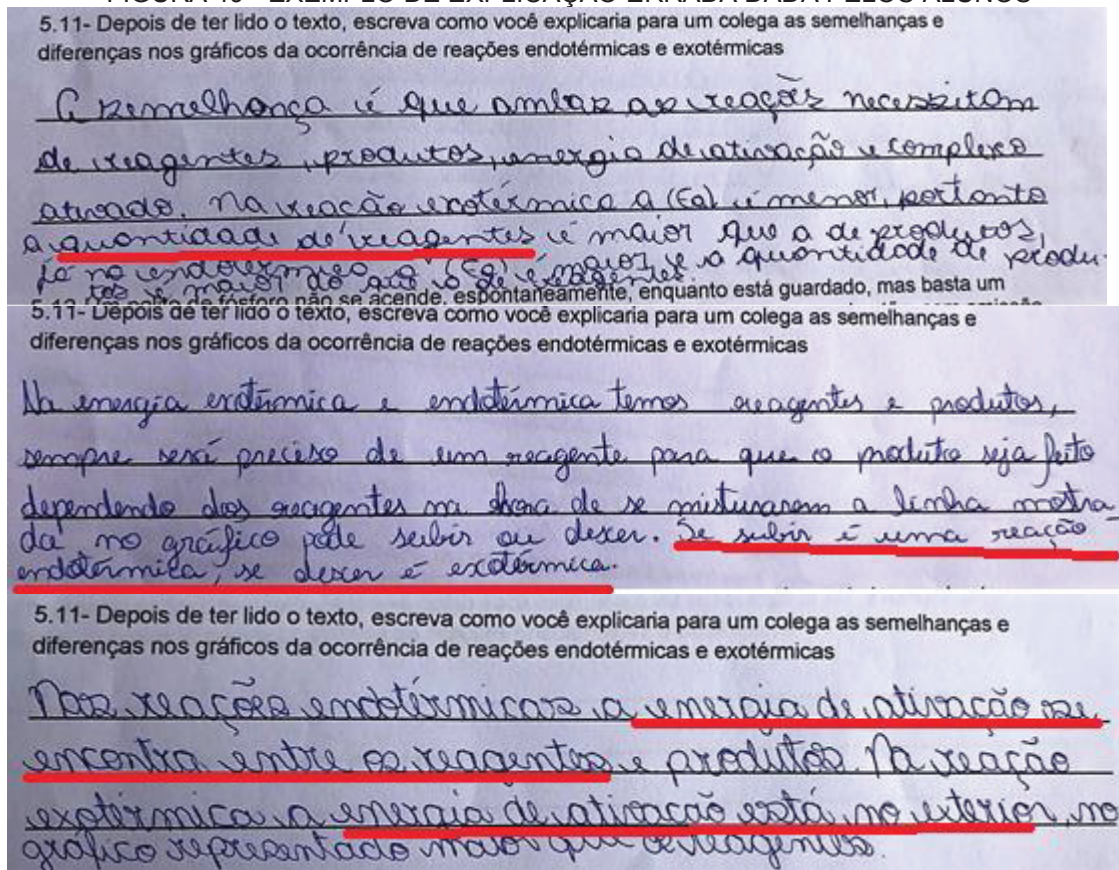 FIGURA 10 - EXEMPLO DE EXPLICAÇÃO ERRADA DADA PELOS ALUNOS
5.11- Depois de ter lido o texto, escreva como você explicaria para um colega as semelhanças e
diferenças nos gráficos da ocorrência de reações endotérmicas e exotérmicas
A semelhança é que ambas as reações necessitam
de reagentes, produtos, energia de ativação e complexo
ativado. Na reação exotérmica a (Ea) é menor, portanto
a quantidade de reagentes é maior que a de produtos,
já na endotérmica a (Ea) é maior e a quantidade de produ-
tos é maior do que a de reagentes.
fósforo não se acende, espontaneamente, enquanto está guardado, mas basta um
5.11- Depois de ter lido o texto, escreva como você explicaria para um colega as semelhanças e
diferenças nos gráficos da ocorrência de reações endotérmicas e exotérmicas
Na energia exotérmica e endotérmica temos reagentes e produtos,
sempre será preciso de um reagente para que o produto seja feito
dependendo dos reagentes na hora de se misturarem a linha mostra
da no gráfico pode subir ou descer. Se subir é uma reação
endotérmica, se descer é exotérmica.
5.11- Depois de ter lido o texto, escreva como você explicaria para um colega as semelhanças e
diferenças nos gráficos da ocorrência de reações endotérmicas e exotérmicas
Nas reações endotérmicas a energia de ativação se
encontra entre os reagentes e produtos. Na reação
exotérmica a energia de ativação está no exterior, no
gráfico representado maior que os reagentes.